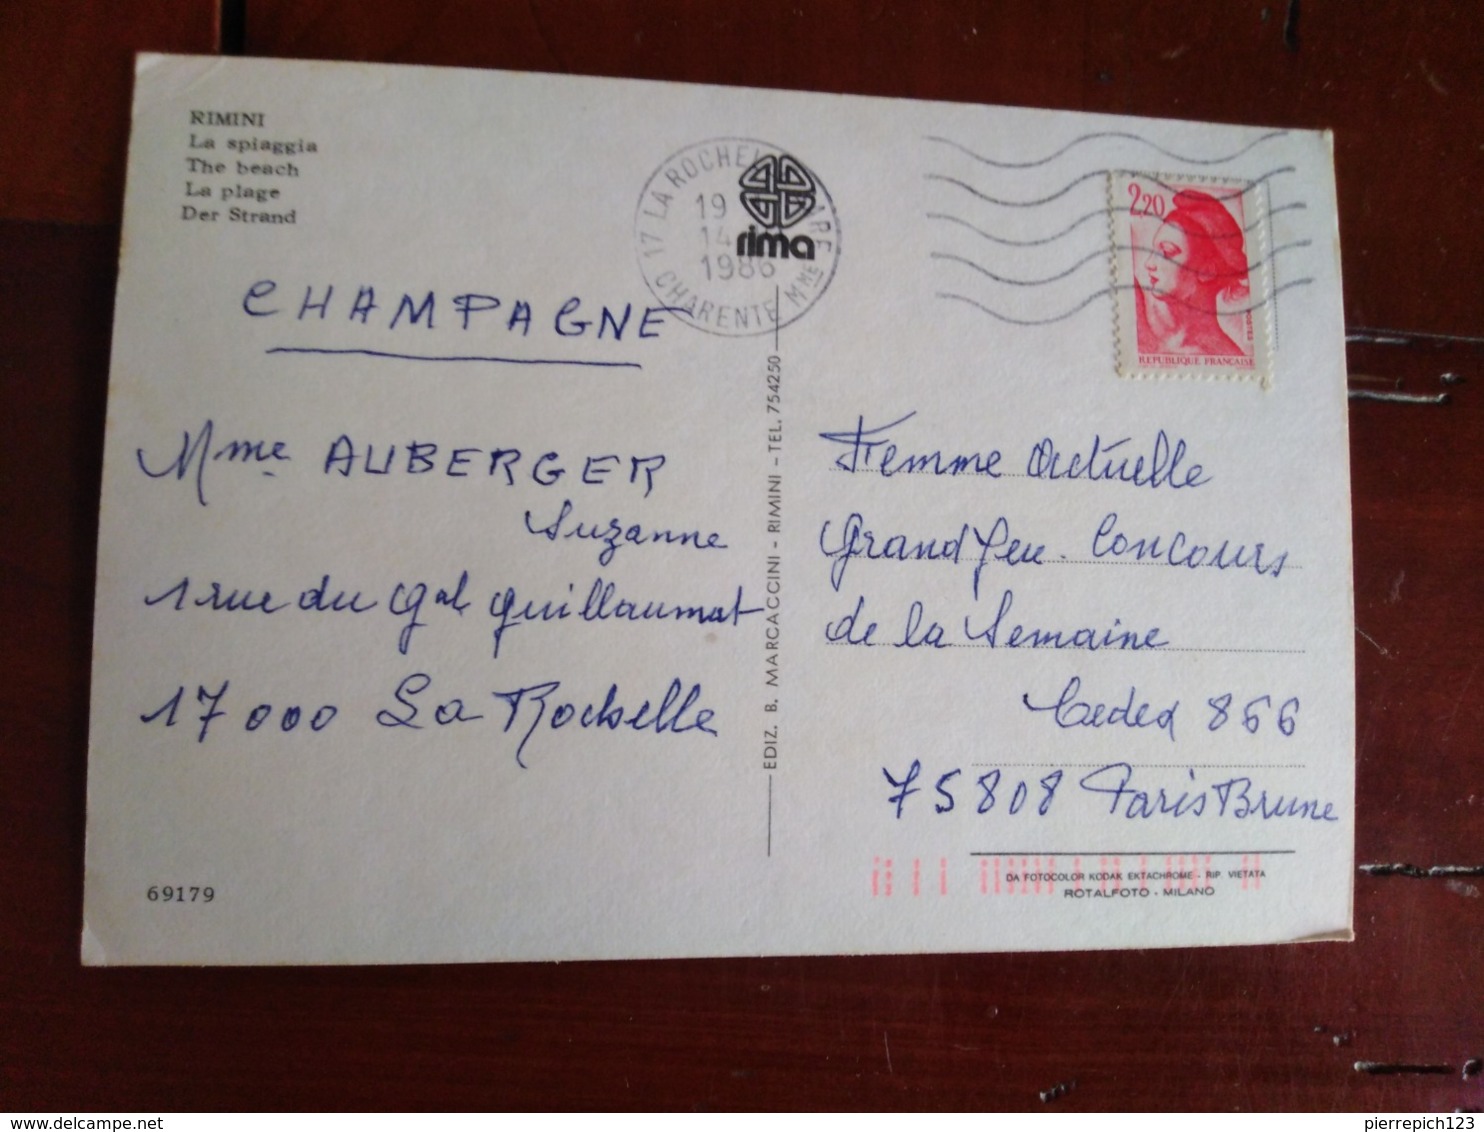 RIMINI
La spiaggia
The beach
La plage
Der Strand
CHAMPAGNE
Mme AUBERGER
Suzanne
1 rue du Gal Guillaumat
17000 La Rochelle
69179
17 LA ROCHE ARE
19
14
1986
CHARENTE MME
rima
EDIZ. B. MARCACCINI - RIMINI - TEL. 754250
2,20
POSTES
REPUBLIQUE FRANÇAISE
Femme Actuelle
Grand Jeu. Concours
de la Semaine
Cedex 866
75808 Paris Brune
DA FOTOCOLOR KODAK EKTACHROME - RIP. VIETATA
ROTALFOTO - MILANO
pierrepich123